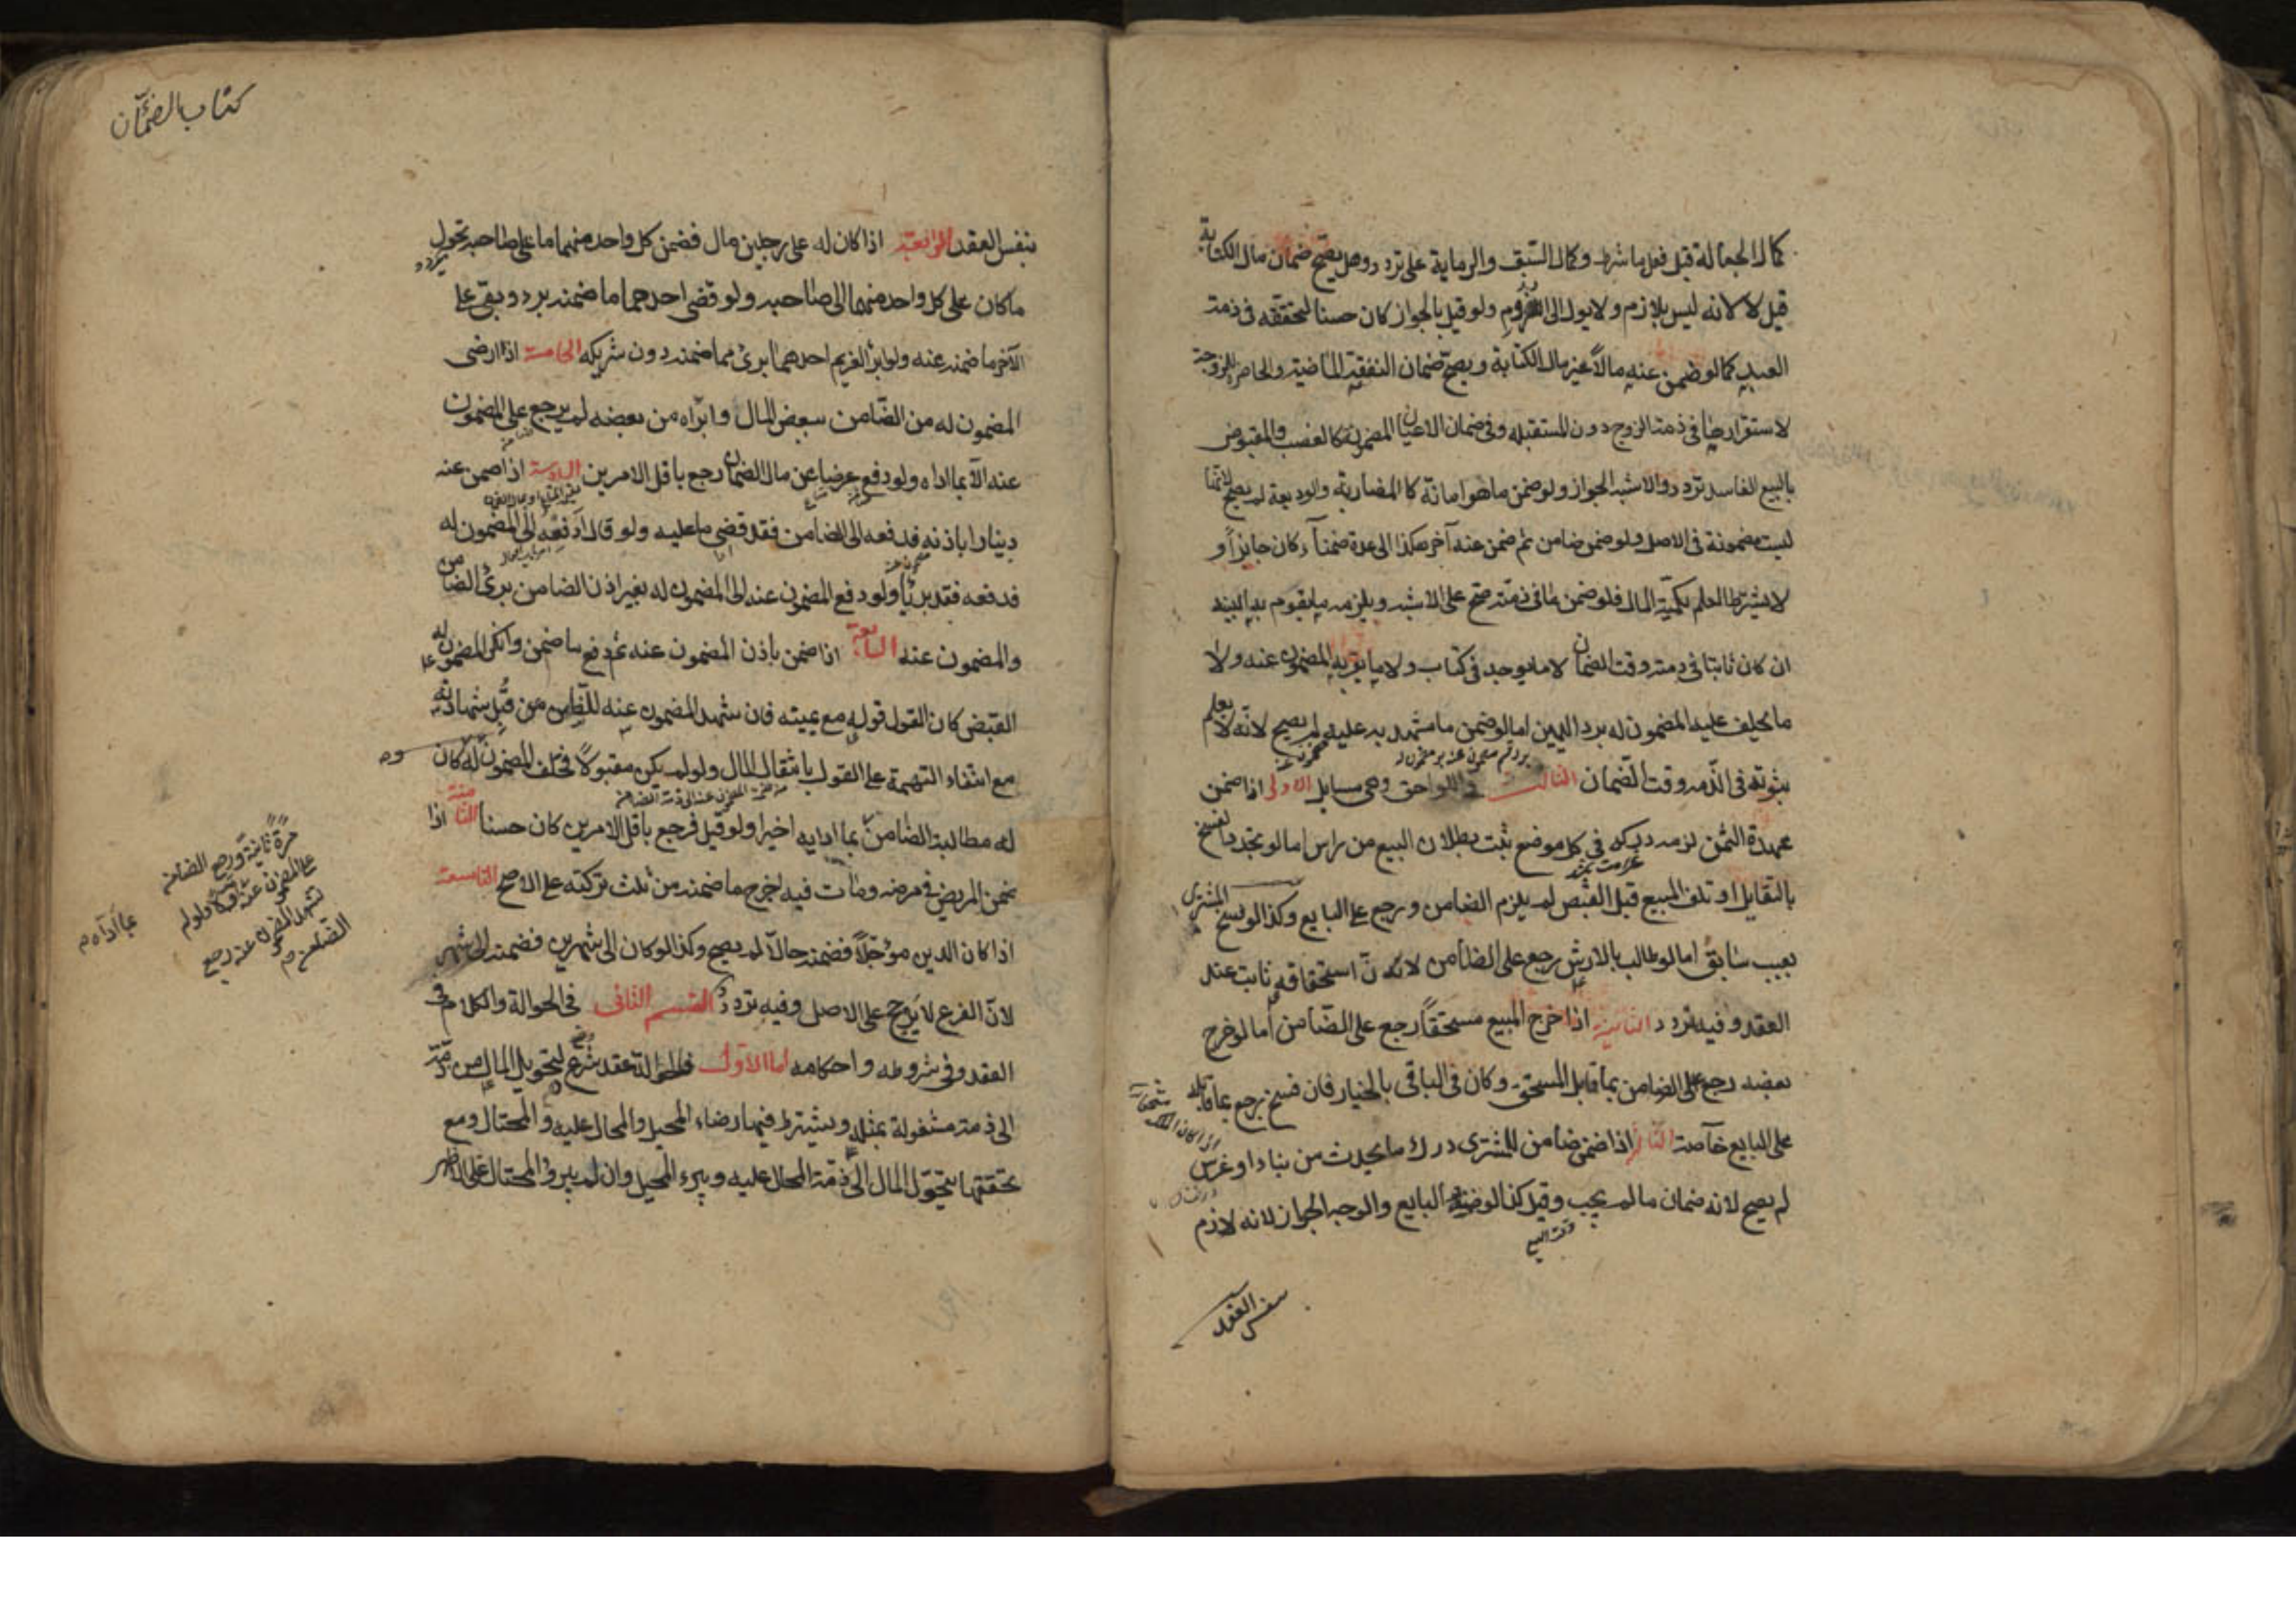 كمال الجعالة قبل فعل ما شرط وكمال السبق والرماية على تردد وهل يصح ضمان مال الكتابة
قيل لا لانه ليس بلازم ولا يول الى اللزوم ولو قيل بالجواز كان حسنا لتحققه في ذمة
العبد كما لو ضمن عنه مالاً غير مال الكتابة ويصح ضمان النفقة الماضية والحاضرة للزوجة
لاستقرارها في ذمة الزوج دون المستقبله وفي ضمان الاعيان المضمونة كالغصب والمقبوض
بالبيع الفاسد تردد والاشبه الجواز ولو ضمن ما هو امانة كالمضاربة والوديعة لم يصح لانها
ليست مضمونة في الاصل ولو ضمن ضامن ثم ضمن عنه آخر هكذا الى عدة ضمنآ كان جايزاً و
لا يشترط العلم بكمية المال فلو ضمن ما في ذمته صح على الاشبه ويلزمه ما يقوم به البينه
ان كان ثابتا في ذمته وقت الضمان لا ما يوجد في كتاب ولا ما يقر به المضمون عنه ولا
ما يحلف عليه المضمون له برد اليمين اما لو ضمن ما يشهد به عليه لم يصح لانه لا يعلم
ثبوته في الذمه وقت الضمان الثالث في اللواحق وهي مسايل الاولى اذا ضمن
عهدة الثمن لزمه دركه في كل موضع ثبت بطلان البيع من راس اما لو تجدد الفسخ
بالتقايل او تلف المبيع قبل القبض لم يلزم الضامن ورجع على البايع وكذا لو فسخ المشتري
بعيب سابق اما لو طالب بالارش رجع على الضامن لان استحقاقه ثابت عند
العقد وفيه تردد الثانية اذا خرج المبيع مستحقاً رجع على الضامن اما لو خرج
بعضه رجع على الضامن بما قابل المستحق وكان في الباقي بالخيار فان فسخ رجع بما قابله
على البايع خاصة الثالثة اذا ضمن ضامن للمشتري درك ما يحدث من بناء او غرس
لم يصح لانه ضمان ما لم يجب وقيل كذا لو ضمنه البايع والوجه الجواز لانه لازم
وقت البيع
بنفس العقد
كتاب الضمان
بنفس العقد الرابعة اذا كان له على رجلين مال فضمن كل واحد منهما ما على صاحبه تحول
ما كان على كل واحد منهما الى صاحبه ولو قضى احدهما ما ضمنه برء وبقي على
الآخر ما ضمنه عنه ولو ابرأ الغريم احدهما برئ مما ضمنه دون شريكه الخامسة اذا رضى
المضمون له من الضامن ببعض المال وابراه من بعضه لم يرجع على المضمون
عنه الا بما اداه ولو دفع عرضا عن مال الضمان رجع باقل الامرين السادسة اذا ضمن عنه
دينارا باذنه فدفعه الى الضامن فقد قضى ما عليه ولو قال ادفعه الى المضمون له
فدفعه فقد برئا ولو دفع المضمون عنه الى المضمون له بغير اذن الضامن برئ الضامن
والمضمون عنه السابعة اذا ضمن باذن المضمون عنه ثم دفع ما ضمن وانكر المضمون له
القبض كان القول قوله مع يمينه فان شهد المضمون عنه للضامن قبل شهادته
مع انتفاء التهمة على القول بانتقال المال ولو لم يكن مقبولاً فحلف المضمون له كان
له مطالبة الضامن بما اداه اخيرا ولو قيل فرجع باقل الامرين كان حسنا الثامنة اذا
ضمن المريض في مرضه ومات فيه خرج ما ضمنه من ثلث تركته على الاصح التاسعة
اذا كان الدين مؤجلاً فضمنه حالاً لم يصح وكذا لو كان الى شهرين فضمنه الى شهر
لان الفرع لا يرجح على الاصل وفيه تردد القسم الثاني في الحوالة والكلام في
العقد وفي شروطه واحكامه اما الاول فالحوالة عقد شرع لتحويل المال من ذمة
الى ذمة مشغولة بمثله ويشترط فيها رضاء المحيل والمحال عليه والمحتال ومع
تحققها يتحول المال الى ذمة المحال عليه ويبرء المحيل وان لم يبرء المحتال على الاظهر
مرة ثانية ورجع الضامن
على المضمون عنه
ولو لم
يشهد المضمون عنه رجع
الضامن
بما اداه